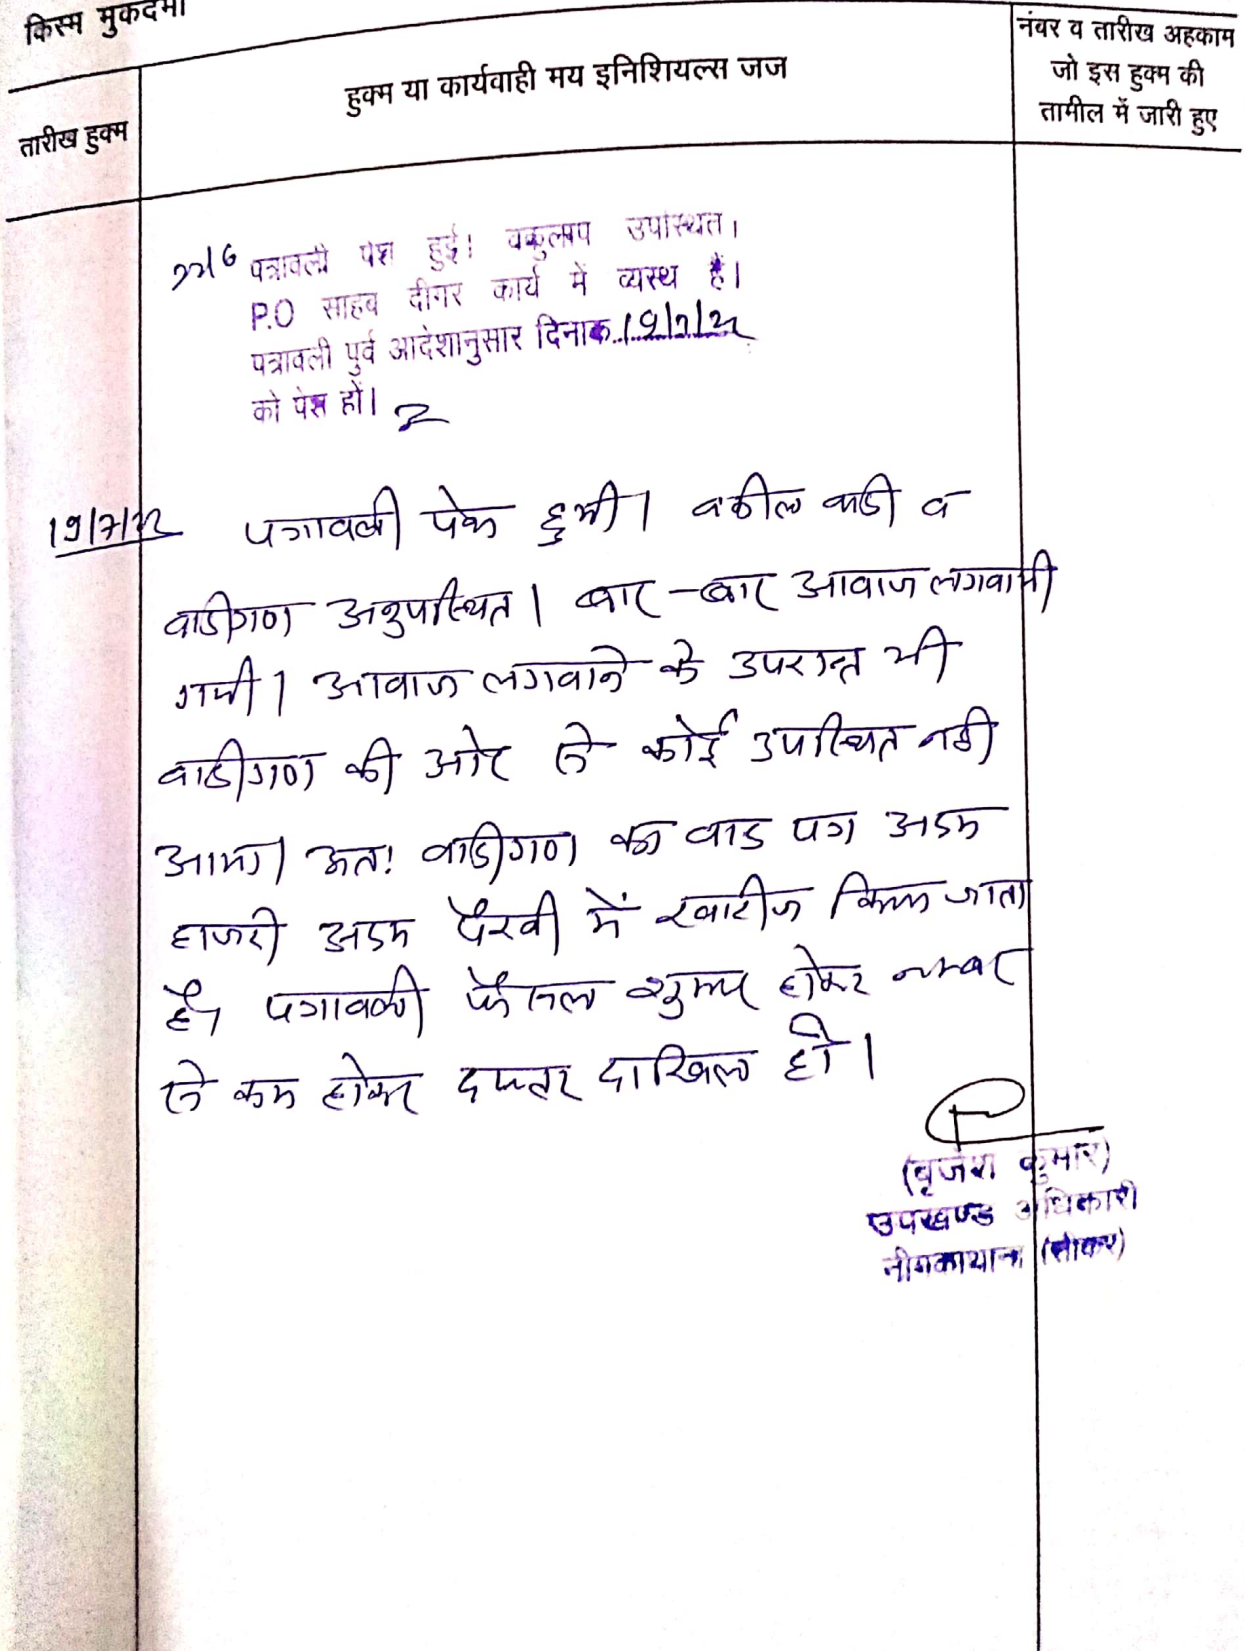 किस्म मुकदमा
तारीख हुक्म
हुक्म या कार्यवाही मय इनिशियल्स जज
नंबर व तारीख अहकाम
जो इस हुक्म की
तामील में जारी हुए
पत्रावली पेश हुई। वकुलाय उपस्थित।
P.O साहब दीगर कार्य में व्यस्थ हैं।
पत्रावली पुर्व आदेशानुसार दिनाक 19/7/22
को पेश हों।
19/7/22 पत्रावली पेश हुयी। वकील वादी व
वादीगण अनुपस्थित। बार-बार आवाज लगवायी
गयी। आवाज लगवाने के उपरान्त भी
वादीगण की ओर से कोई उपस्थित नही
आया। अतः वादीगण का वाद पत्र अदम
हाजरी अदम पैरवी में खारीज किया जाता
है। पत्रावली फैसल शुमार होकर नम्बर
से कम होकर दफ्तर दाखिल हो।
(बृजेश कुमार)
उपखण्ड अधिकारी
नीमकाथाना (सीकर)